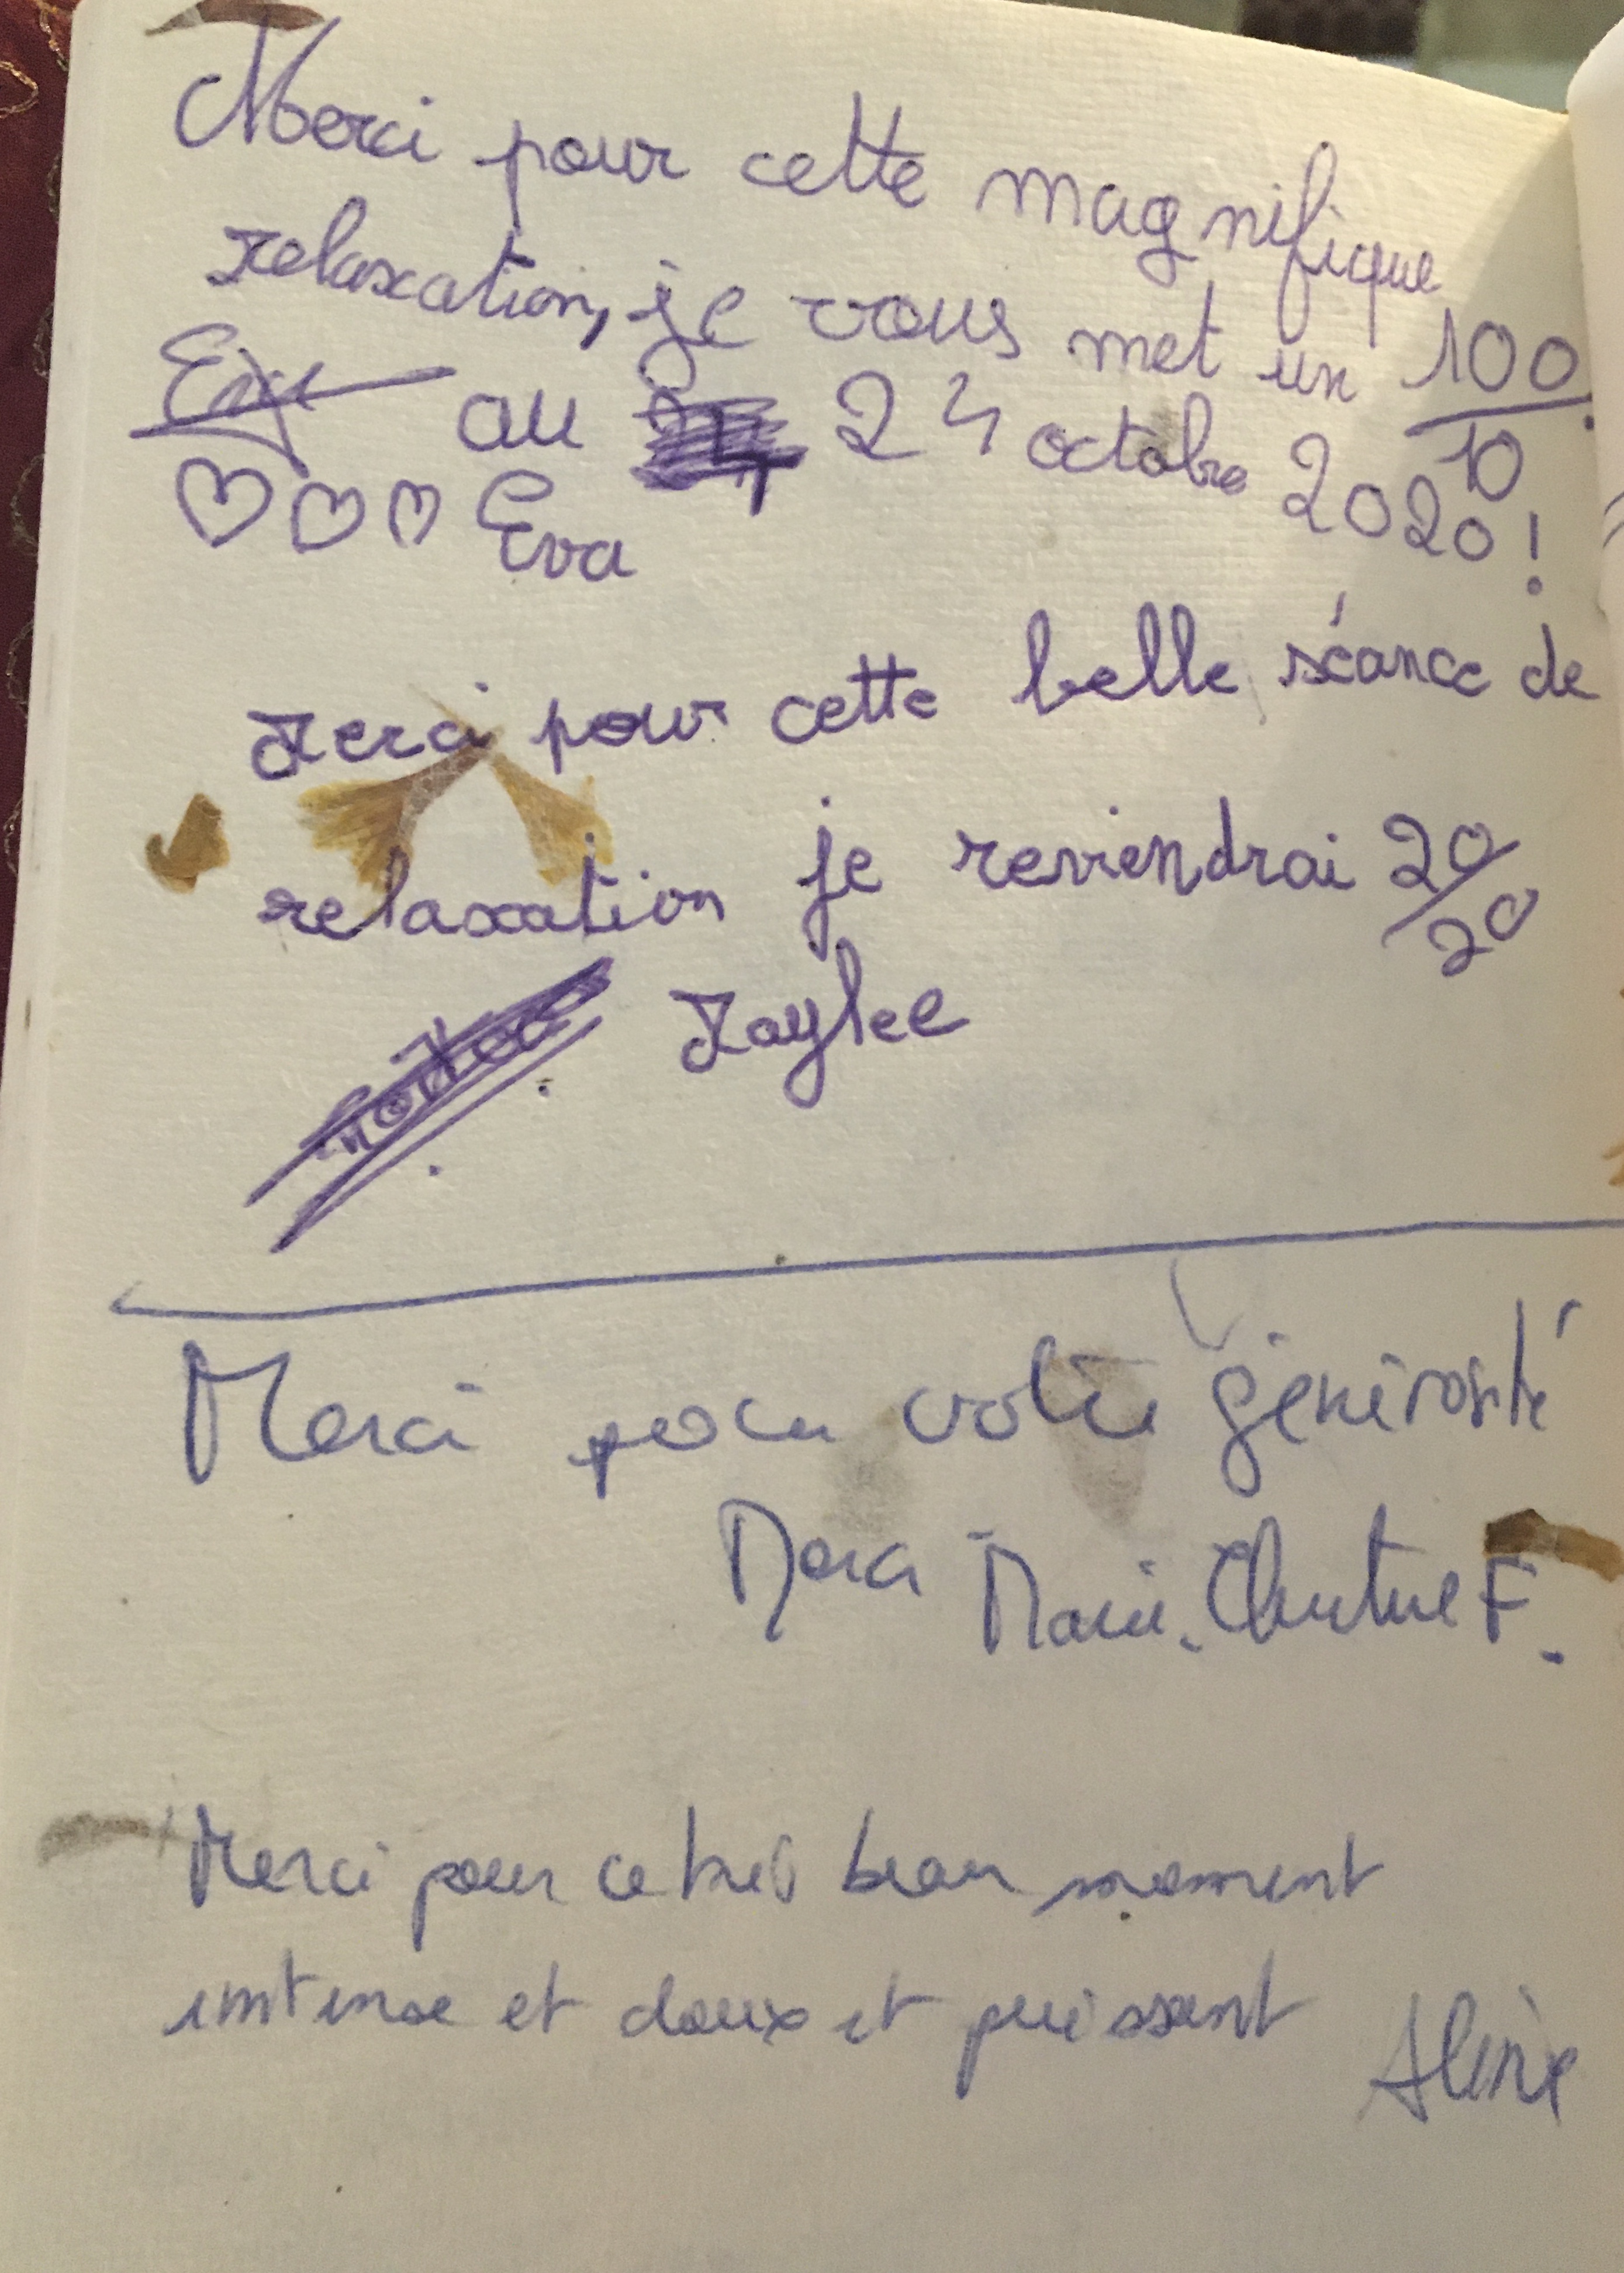 Merci pour cette magnifique
relaxation, je vous met un 100/10
Eva au 24 octobre 2020 !
♡♡♡ Eva
Merci pour cette belle séance de
relaxation je reviendrai 20/20
Kaylee
Merci pour votre générosité
Merci Marie-Christine F.
Merci pour ce très beau moment
intense et doux et puissant Aline